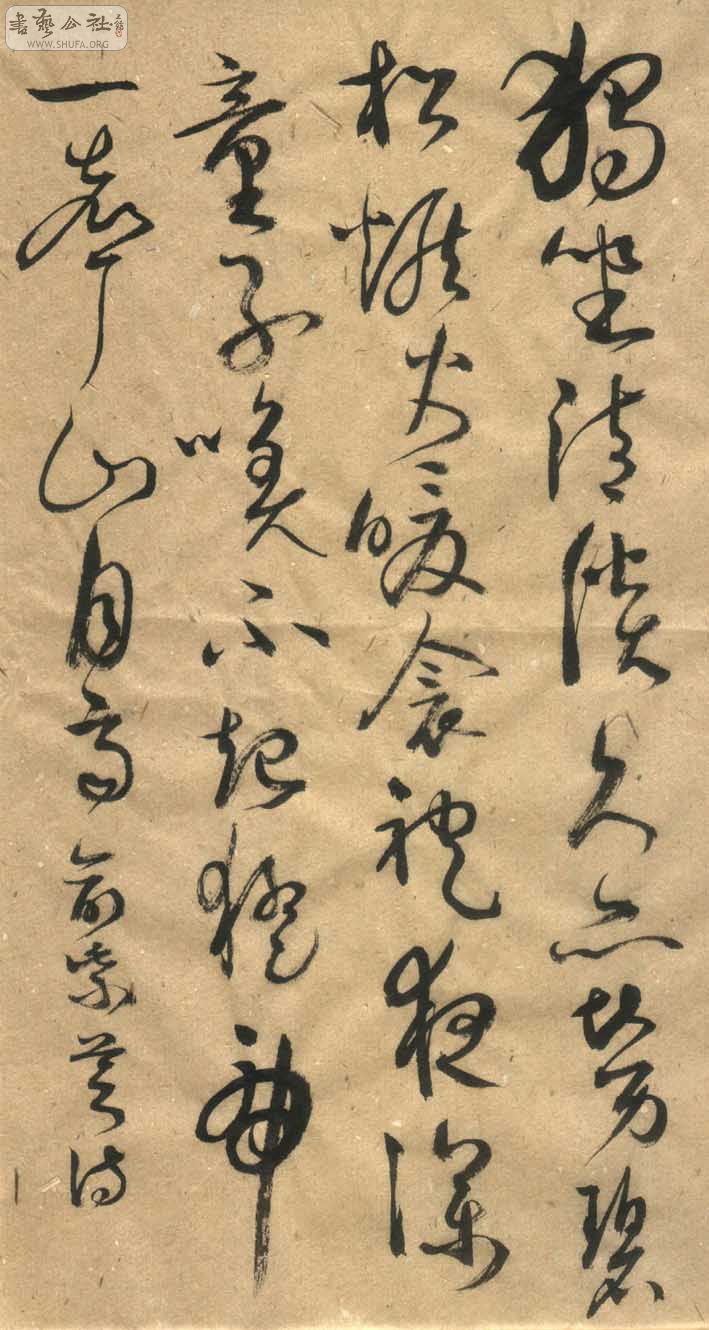 書藝公社
WWW.SHUFA.ORG
獨坐清談久亦勞碧
松燃火暖衾袍夜深
童子喚不起猛虎
一聲山月高俞紫芝詩